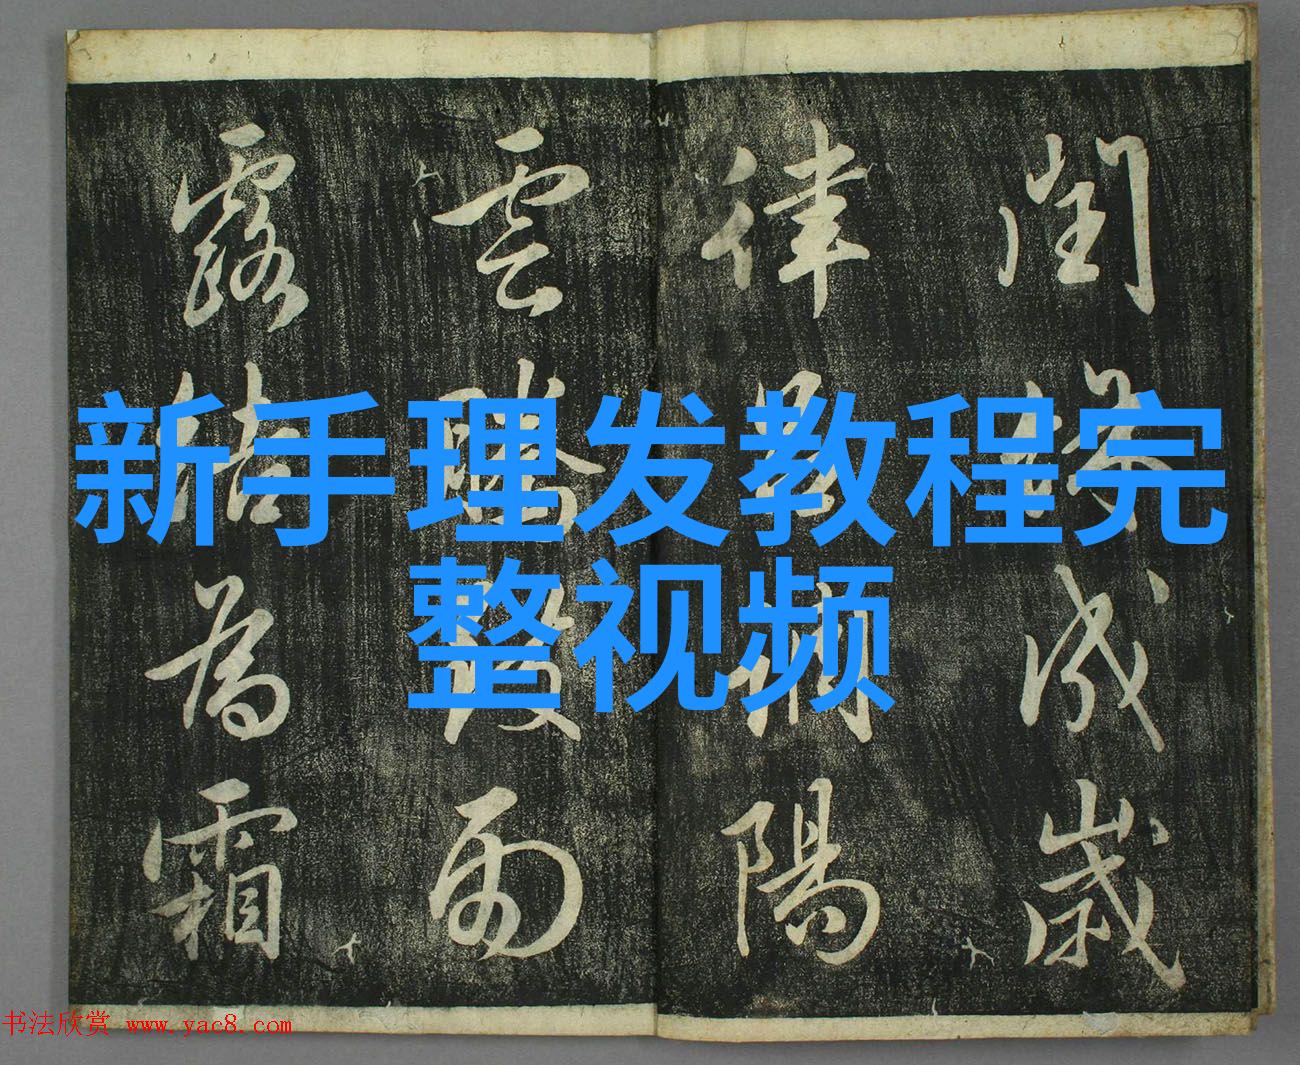 閏餘成歲
律呂調陽
雲騰致雨
露結為霜
新手理发教程完
整视频
书法欣赏 www.yac8.com